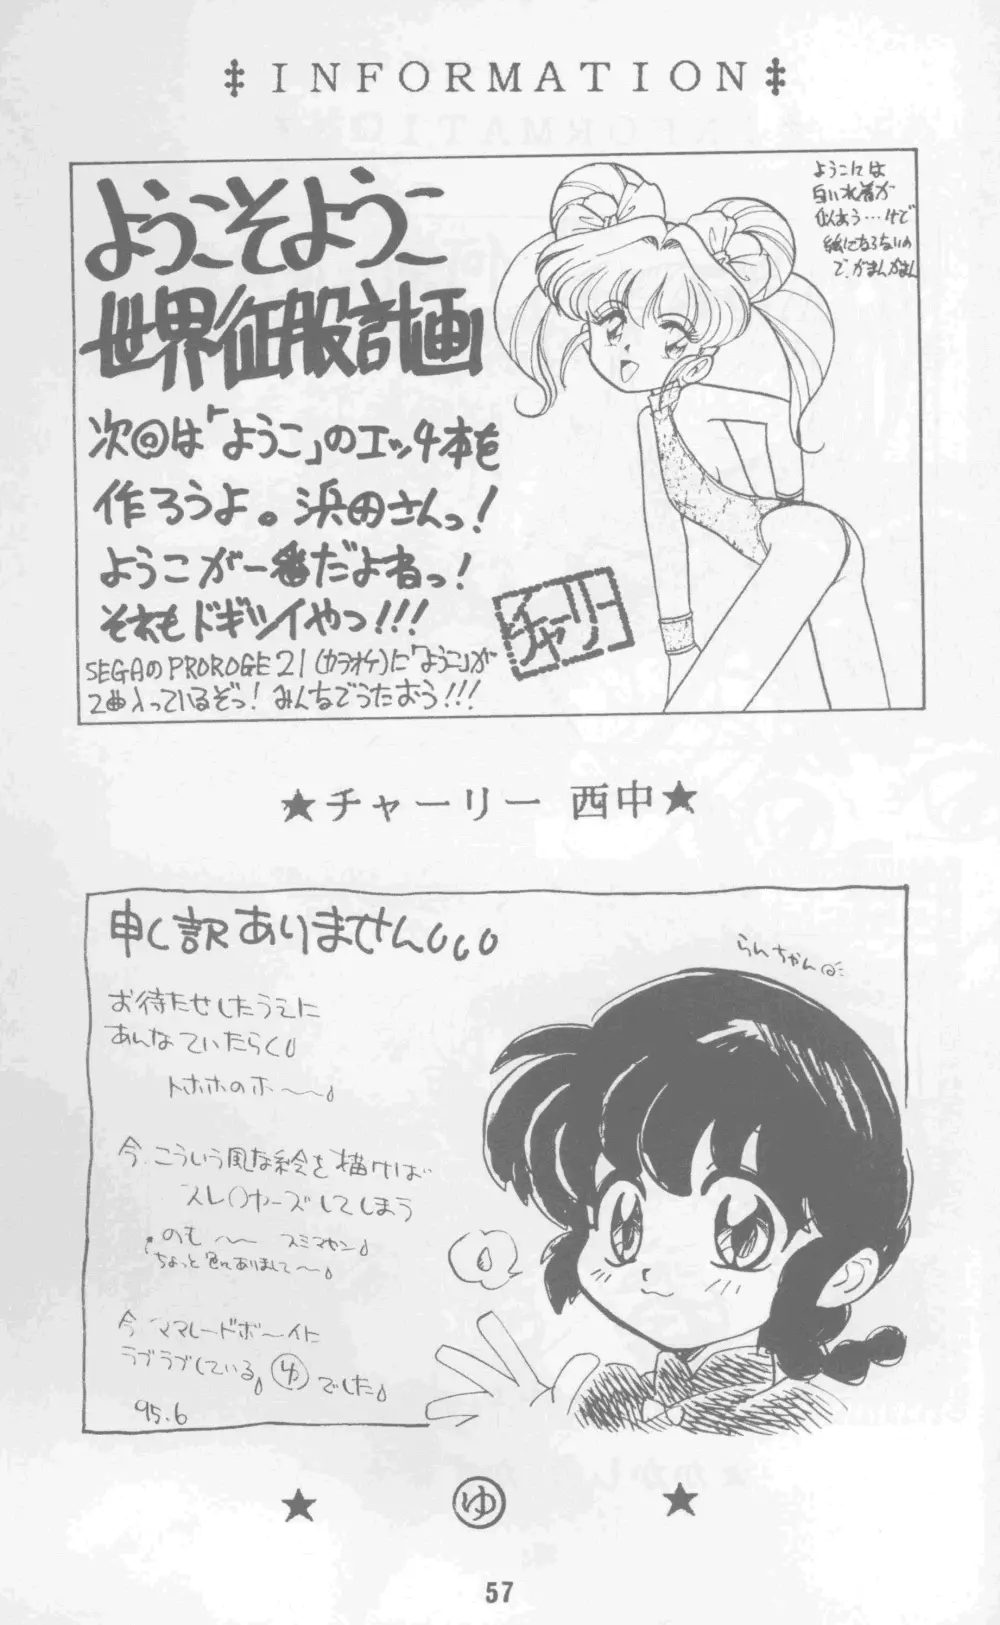 INFORMATION
ようこそようこ
世界征服計画
次回は「ようこ」のエッチ本を
作ろうよ。浜田さんっ!
ようこが一番だよねっ!
それもドギツイやつ!!!
SEGAのPROROGE 21(カラオケ)に「ようこ」が
2曲入っているぞっ! みんなでうたおう!!!
ようこには
白い水着が
似あう…けど
絵にならないの
で、がまんがまん
チャーリー
★チャーリー 西中★
申し訳ありません
らんちゃん
お待たせしたうえに
あんなていたらく
トホホのホ〜〜
今、こういう風な絵を描けば
してしまう
のも〜〜 スミマセン
ちょっと ありまして〜
今 ママレードボーイに
ラブラブしている ゆ でした
95.6
★ ゆ ★
57